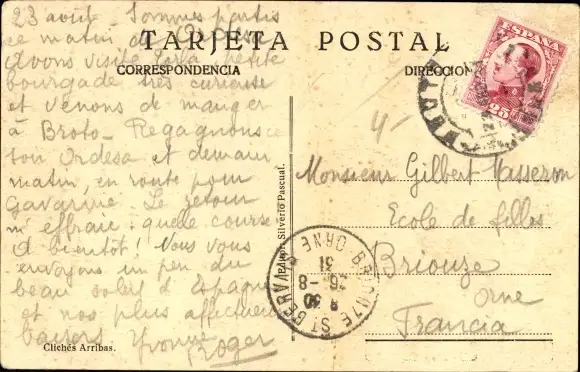 TARJETA POSTAL
CORRESPONDENCIA
DIRECCION
23 août. Sommes partis
ce matin de
Avons visité petite
bourgade très curieuse
et venons de manger
à Broto. Regagnons ce
soir Ordesa et demain
matin, en route pour
Gavarnie. Le retour
m'effraie: quelle course
A bientôt! Nous vous
envoyons un peu du
beau soleil d'Espagne
et nos plus affectueux
baisers Yvonne
Roger
Clichés Arribas.
Silverio Pascual.
ESPAÑA
25
Monsieur Gilbert Masseron
Ecole de filles
Briouze
Orne
Francia
BRIOUZE ST GERVAIS
ORNE
26-8
31